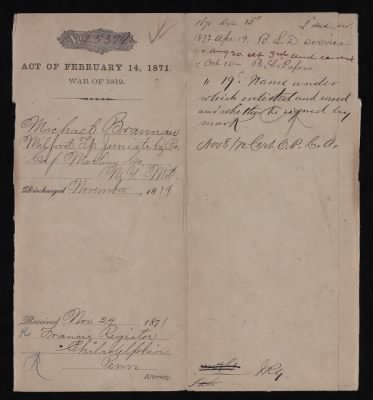 No 25374
ACT OF FEBRUARY 14, 1871.
WAR OF 1812.
Michael Brannan
Milford Tp. Juniata Co.
Capt
Co.
N.Y. Mil.
Discharged November, 1814
Received Nov 24 1871
Francis Register
Philadelphia
Penn
Attorney.
1871 Dec 28th
1872 Apr. 19, B. L. D service
" Aug 20. at 3rd and
" Oct 10 - B. L. Papers
" 19" Name under
which enlisted and served
and whether he signed by
mark.
Nov 8/72 Cert. O.P. C. A.